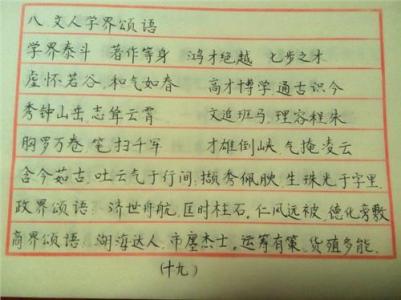 八 文人学界颂语
学界泰斗 著作等身 鸿才绝越 七步之才
虚怀若谷,和气如春 高才博学 通古识今
秀钟山岳,志耸云霄 文追班马,理容程朱
胸罗万卷,笔扫千军 才雄倒峡 气掩凌云
含今茹古,吐云气于行间,撷秀佩映,生珠光于字里.
政界颂语: 济世舟航,匡时柱石,仁风远被,德化旁敷
商界颂语 湖海达人,市廛杰士,运筹有策,货殖多能.
(十九)